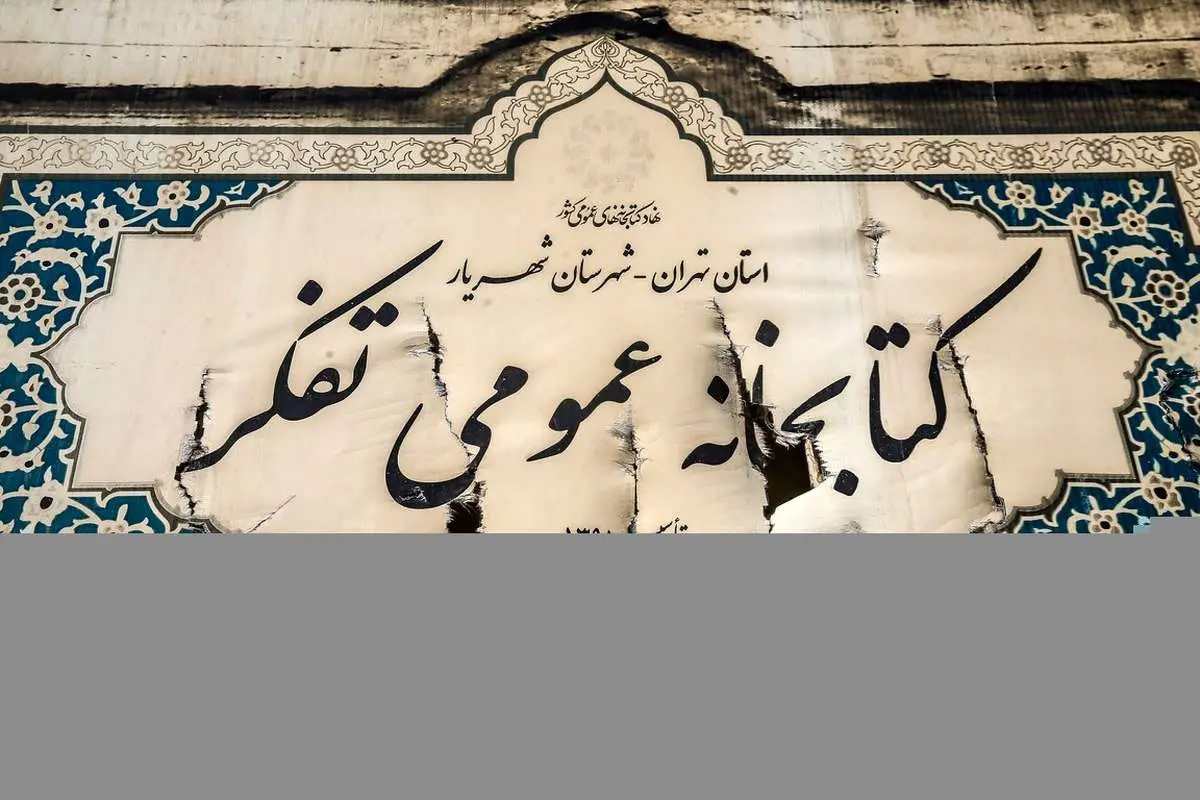 نهاد کتابخانه‌های عمومی کشور
استان تهران - شهرستان شهریار
کتابخانه عمومی تفکر